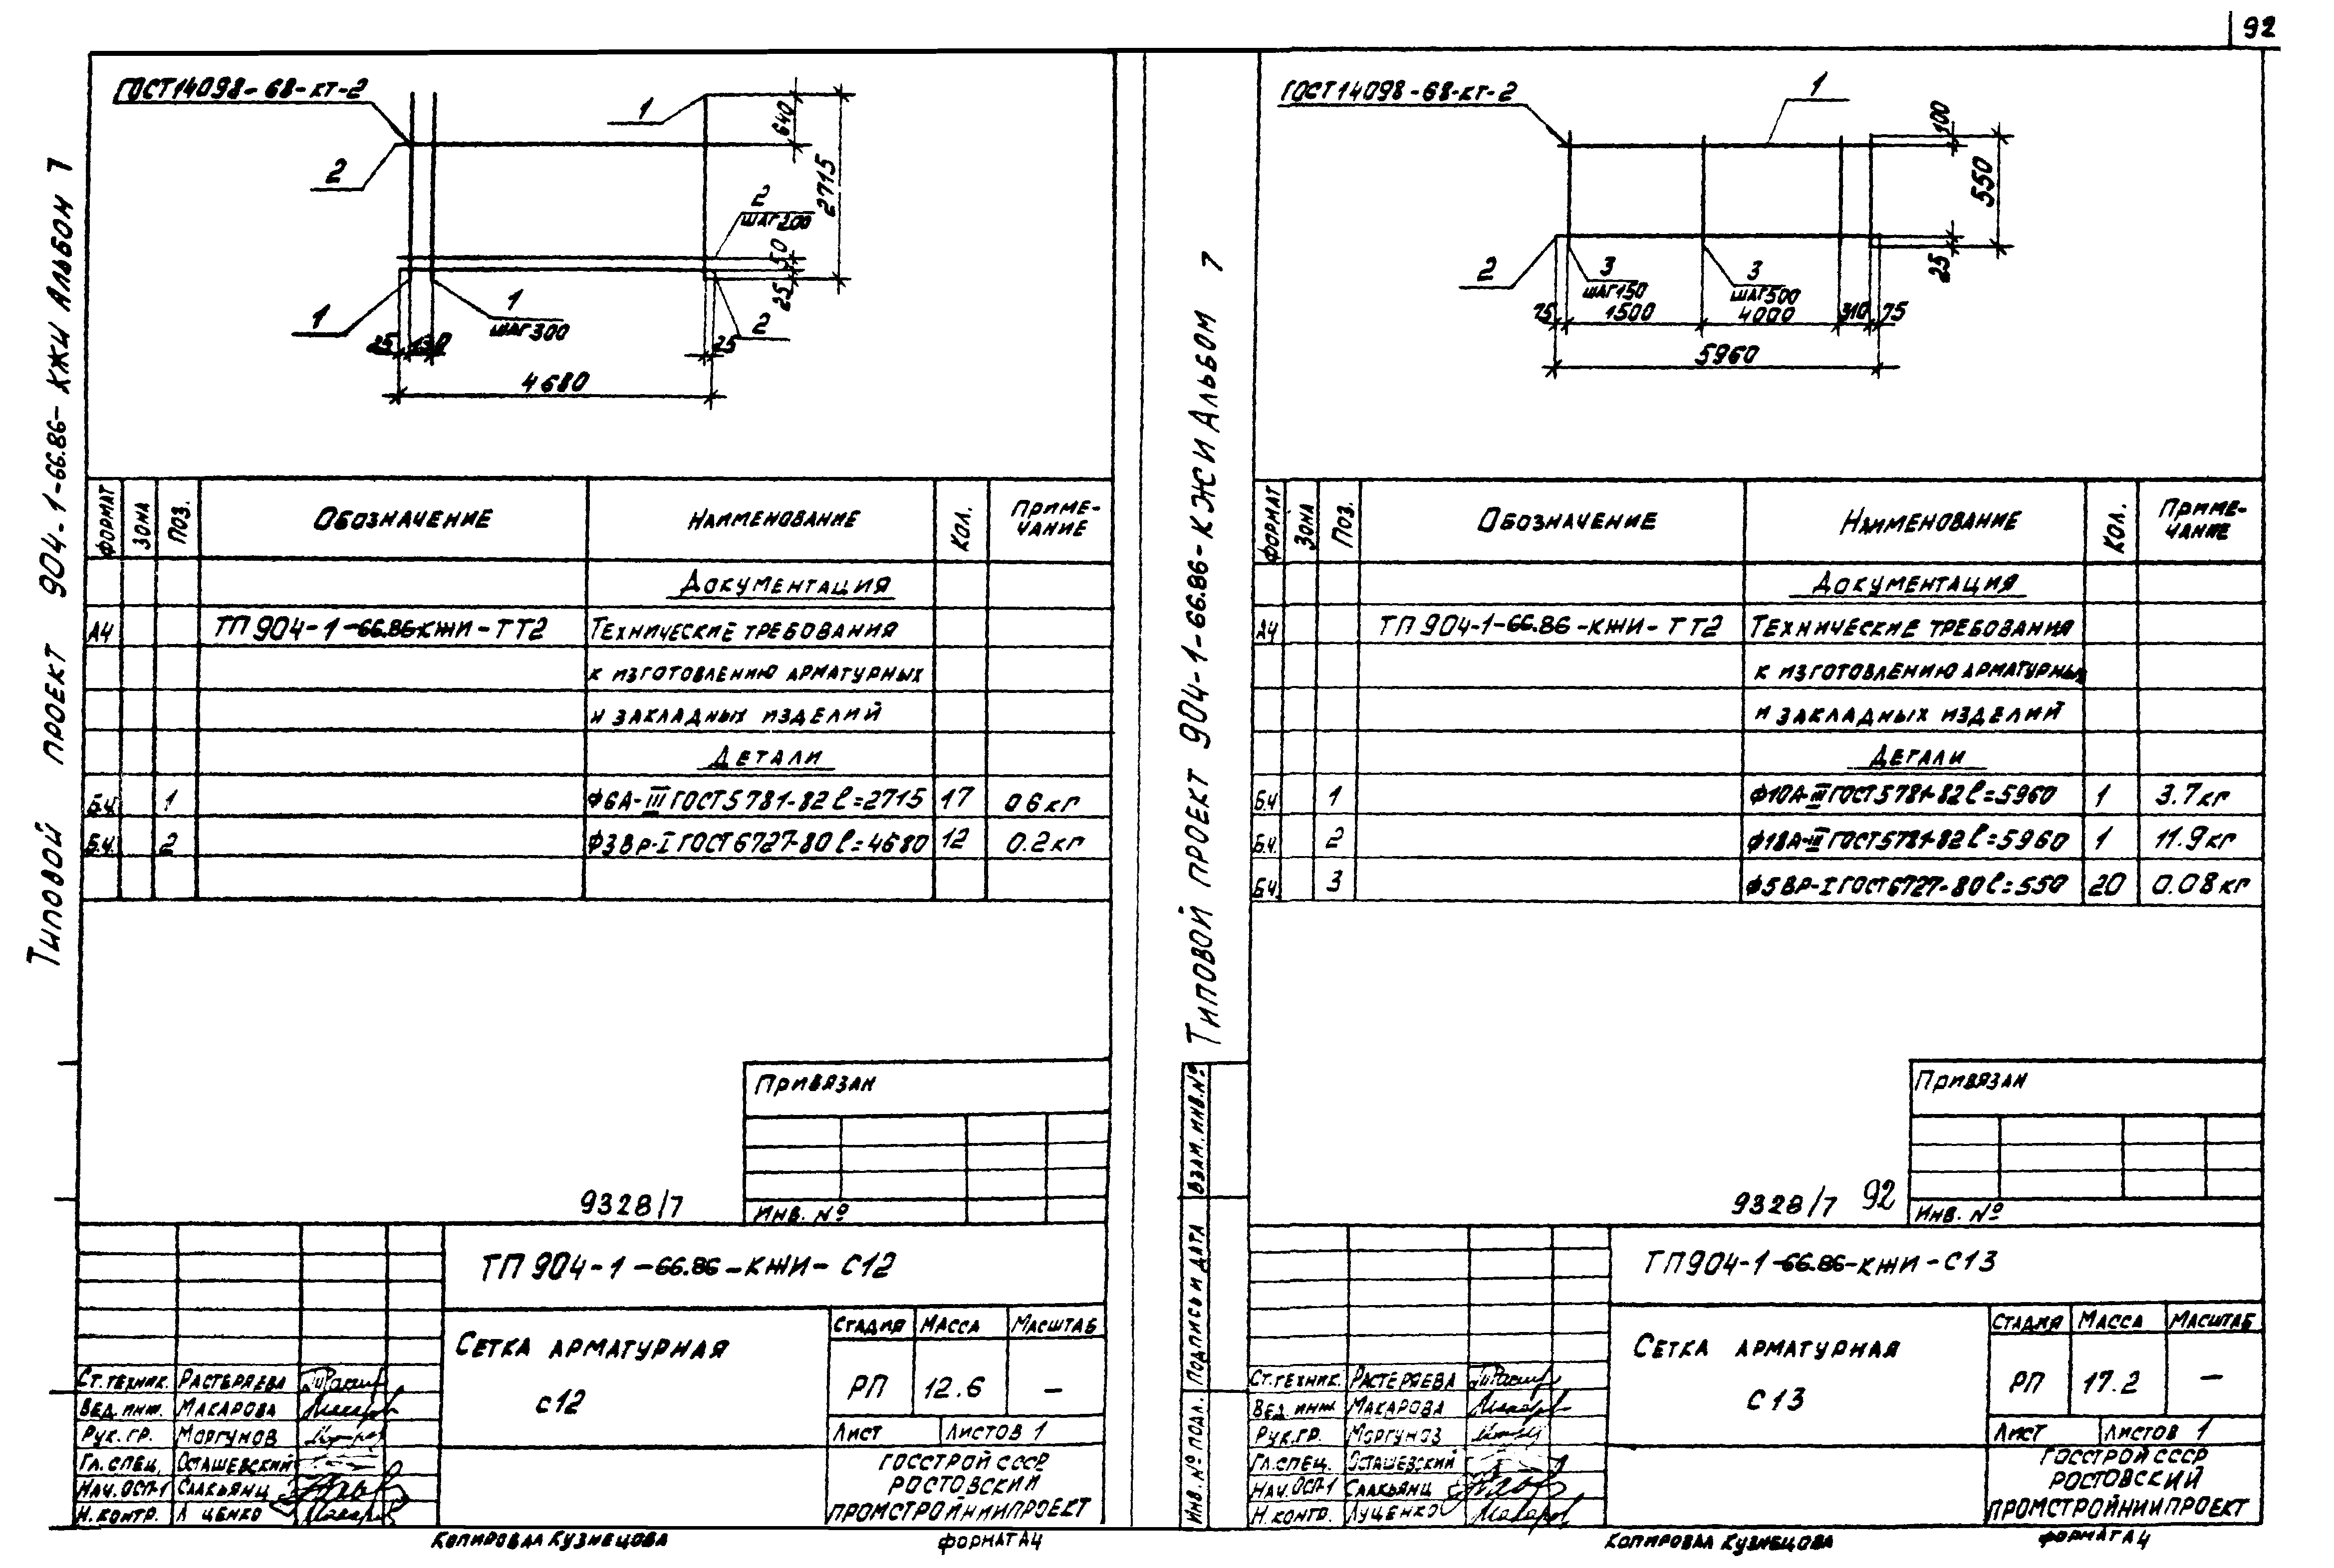 92
Типовой проект 904-1-66.86-КЖИ Альбом 7
ГОСТ14098-68-КТ-2
1
2
640
2715
2
шаг200
50
25
1
1
шаг300
2
25 130 25
4680
Формат Зона Поз. Обозначение Наименование Кол. Приме-
чание
Документация
А4 ТП904-1-66.86-КЖИ-ТТ2 Технические требования
к изготовлению арматурных
и закладных изделий
Детали
Б.ч. 1 Ф6А-III ГОСТ5781-82 ℓ=2715 17 06кг
Б.ч. 2 Ф3Вр-I ГОСТ6727-80 ℓ=4680 12 0.2кг
Привязан
9328/7
Инв. №
ТП904-1-66.86-КЖИ-С12
Сетка арматурная
С12
Стадия Масса Масштаб
РП 12.6 —
Лист Листов 1
Ст.техник. Растеряева
Вед.инж. Макарова
Рук.гр. Моргунов
Гл.спец. Осташевский
Нач.ОСП-1 Саакьянц
Н.контр. Л ценко
Госстрой СССР
Ростовский
Промстройниипроект
Копировал Кузнецова Формат А4
Типовой проект 904-1-66.86-КЖИ Альбом 7
ГОСТ14098-68-КТ-2
1
100
550
25
2
3
шаг150
3
шаг500
75 1500 4000 310 75
5960
Формат Зона Поз. Обозначение Наименование Кол. Приме-
чание
Документация
А4 ТП904-1-66.86-КЖИ-ТТ2 Технические требования
к изготовлению арматурных
и закладных изделий
Детали
Б.ч 1 Ф10А-III ГОСТ5781-82 ℓ=5960 1 3.7кг
Б.ч. 2 Ф18А-III ГОСТ5781-82 ℓ=5960 1 11.9кг
Б.ч. 3 Ф5ВР-I ГОСТ6727-80 ℓ=550 20 0.08кг
Привязан
9328/7 92
Инв. №
Взам.инв.№
Подпись и дата
Инв.№ подл.
ТП904-1-66.86-КЖИ-С13
Сетка арматурная
С13
Стадия Масса Масштаб
РП 17.2 —
Лист Листов 1
Ст.техник. Растеряева
Вед.инж Макарова
Рук.гр. Моргунов
Гл.спец. Осташевский
Нач.ОСП-1 Саакьянц
Н.контр. Луценко
Госстрой СССР
Ростовский
Промстройниипроект
Копировал Кузнецова Формат А4